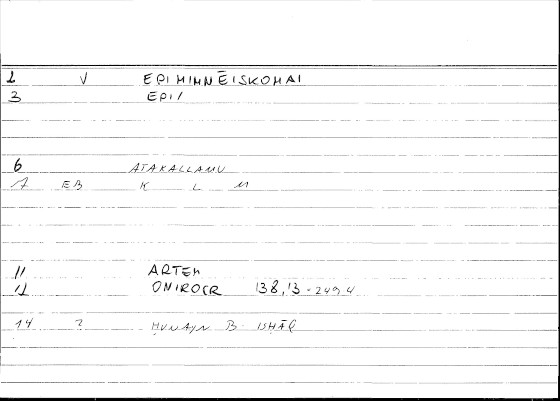 2 V EPIMIMNĒISKOMAI
3 EPI/
6 ATAKALLAMU
7 EB K L M
11 ARTEM
12 ONIROCR 138,13 - 249,4
14 2 ḤUNAYN B. ISḤĀQ